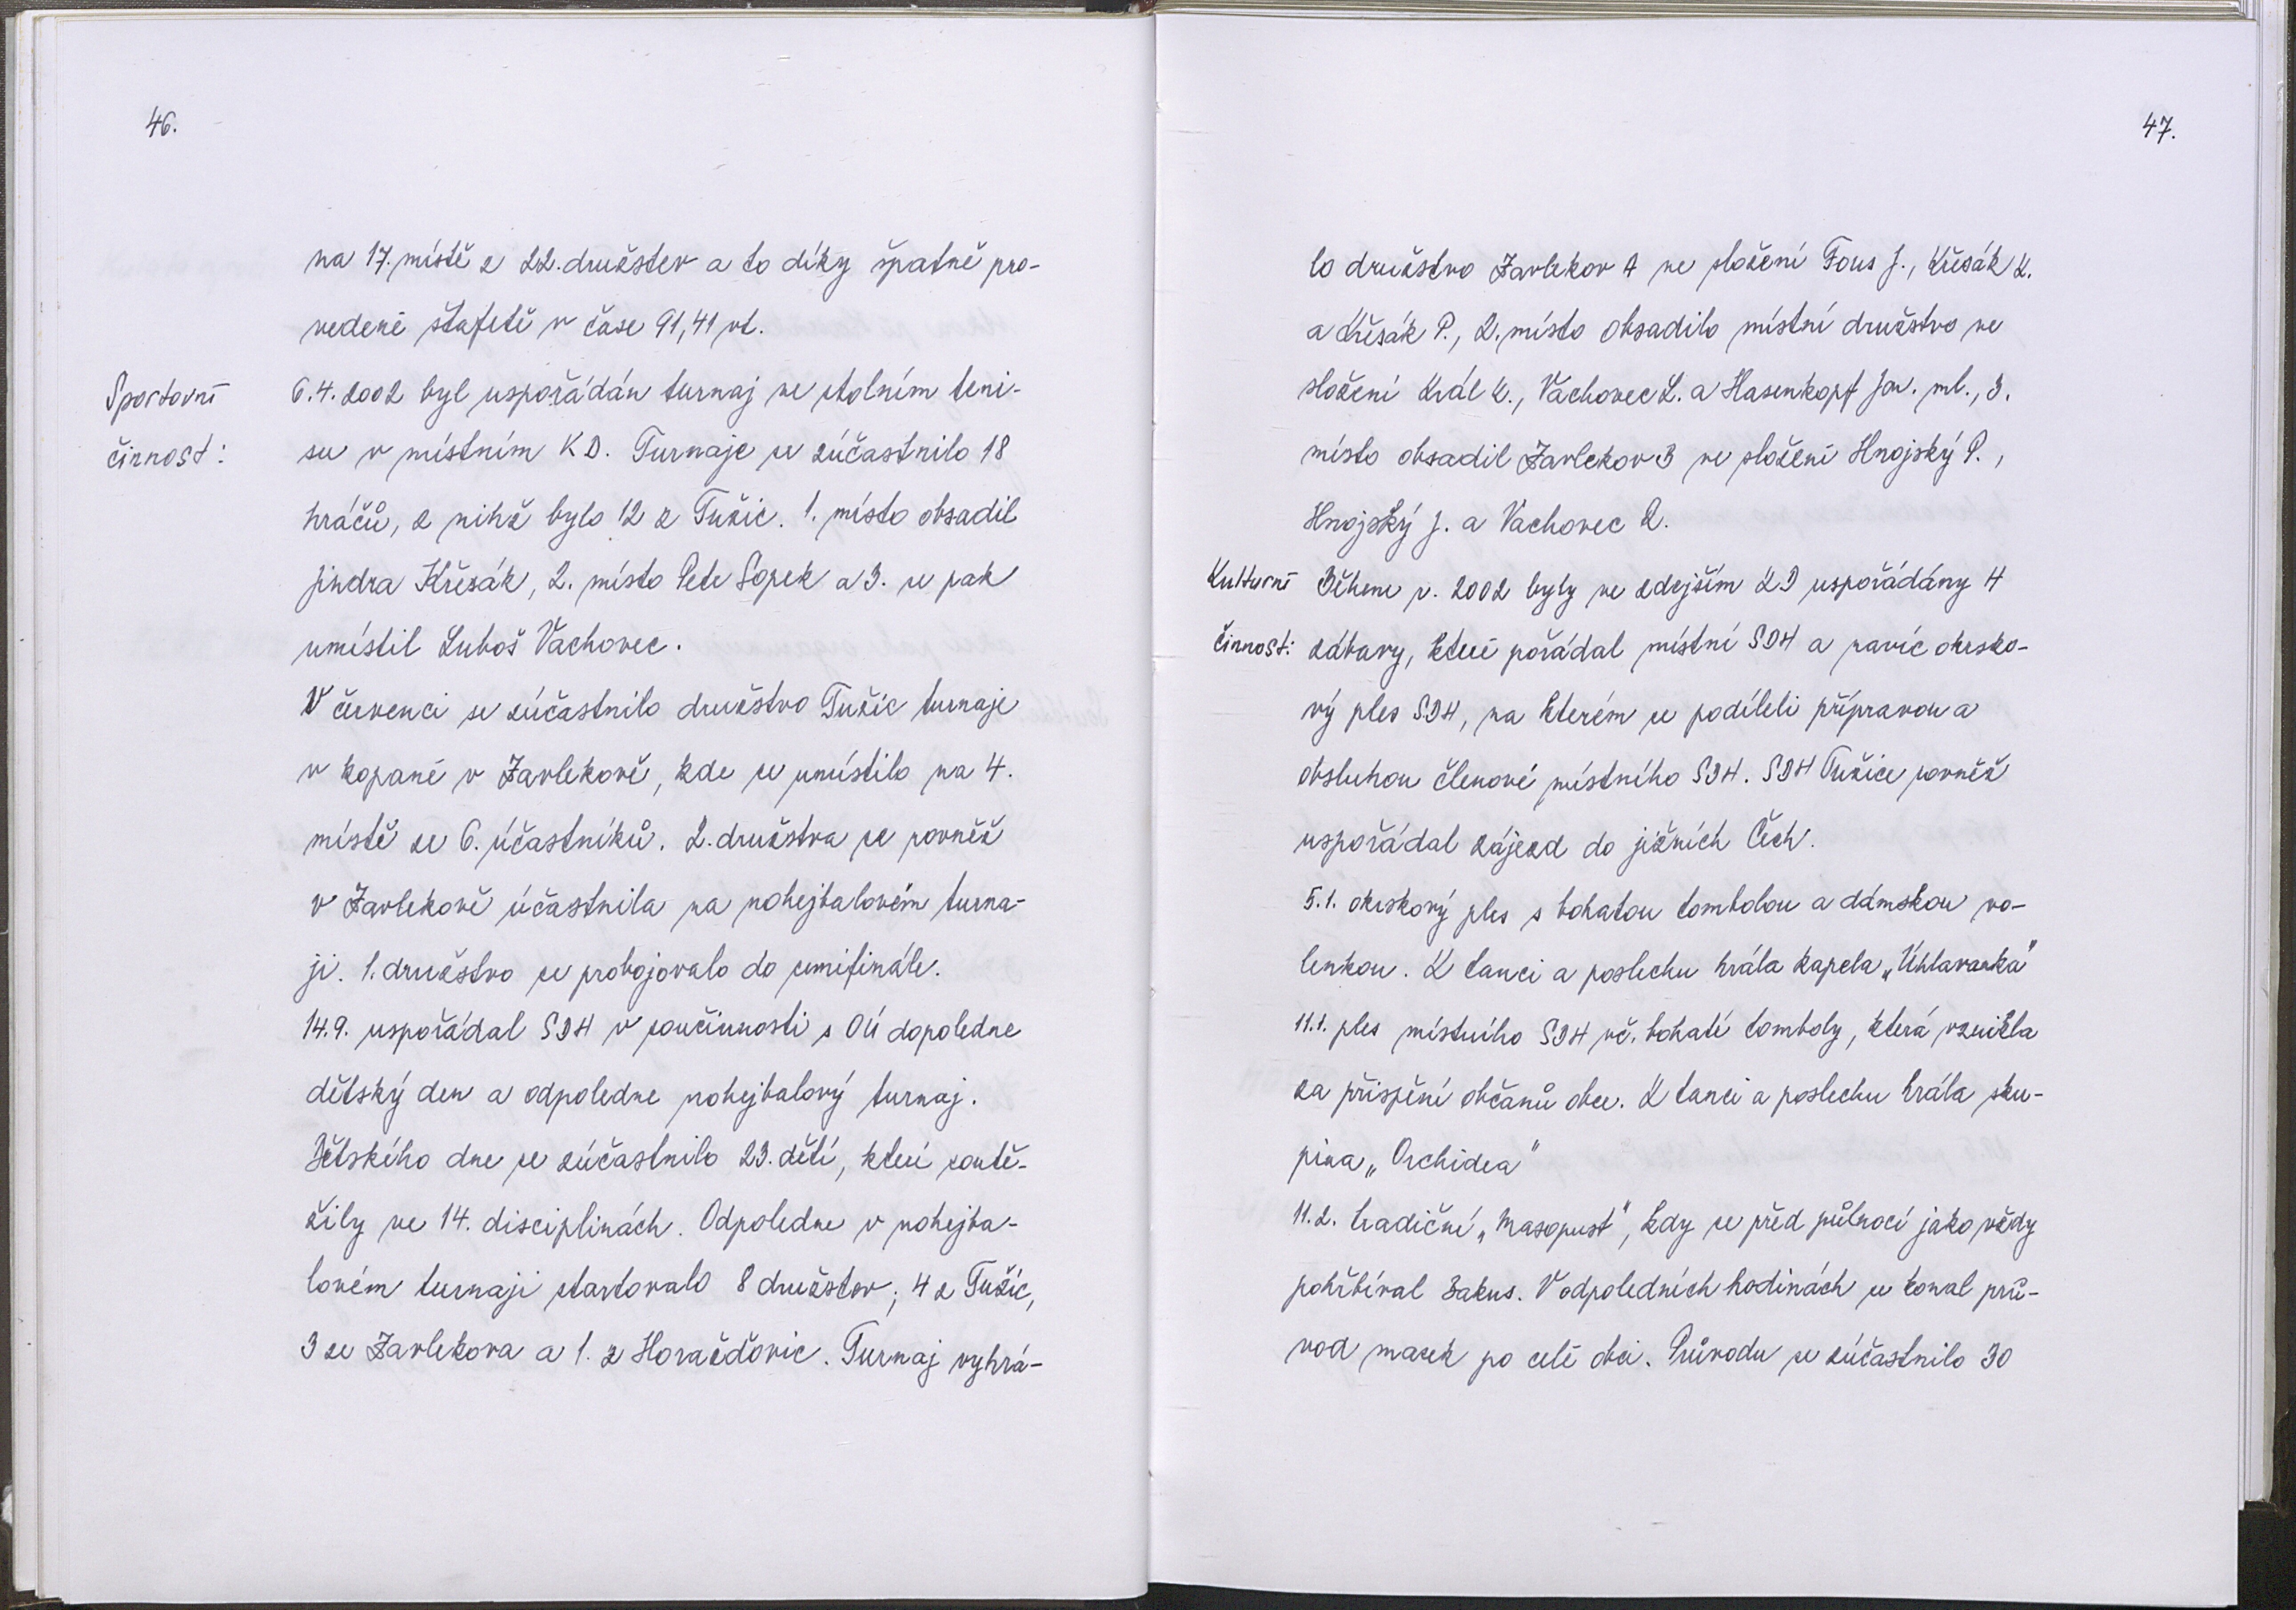 46.
na 17. místě z 22. družstev a to díky špatně pro-
vedené štafetě v čase 91,41 vt.
Sportovní
činnost:
6.4.2002 byl uspořádán turnaj ve stolním teni-
su v místním KD. Turnaje se zúčastnilo 18
hráčů, z nihž bylo 12 z Tužic. 1. místo obsadil
Jindra Křesák, 2. místo Petr Sopek a 3. se pak
umístil Luboš Vachovec.
V červenci se zúčastnilo družstvo Tužic turnaje
v kopané v Zavlekově, kde se umístilo na 4.
místě ze 6. účastníků. 2. družstva se rovněž
v Zavlekově účastnila na nohejbalovém turna-
ji. 1. družstvo se probojovalo do semifinále.
14.9. uspořádal SDH v součinnosti s OÚ dopoledne
dětský den a odpoledne nohejbalový turnaj.
Dětského dne se zúčastnilo 23. dětí, které soutě-
žily ve 14. disciplinách. Odpoledne v nohejba-
lovém turnaji startovalo 8 družstev; 4 z Tužic,
3 ze Zavlekova a 1. z Horažďovic. Turnaj vyhrá-
47.
lo družstvo Zavlekov A ve složení Fous J., Křesák K.
a Křesák P., 2. místo obsadilo místní družstvo ve
složení Král K., Vachovec L. a Hasenkopf Jar. ml., 3.
místo obsadil Zavlekov B ve složení Hnojský P.,
Hnojský J. a Vachovec R.
Kulturní
činnost:
Během r. 2002 byly ve zdejším KD uspořádány 4
zábavy, které pořádal místní SDH a navíc okrsko-
vý ples SDH, na kterém se podíleli přípravou a
obsluhou členové místního SDH. SDH Tužice rovněž
uspořádal zájezd do jižních Čech.
5.1. okrskový ples s bohatou tombolou a dámskou vo-
lenkou. K tanci a poslechu hrála kapela „Úhlavanka"
11.1. ples místního SDH vč. bohaté tomboly, která vznikla
za přispění občanů obce. K tanci a poslechu hrála sku-
pina „Orchidea"
11.2. tradiční „Masopust", kdy se před půlnocí jako vždy
pohřbíval Bakus. V odpoledních hodinách se konal prů-
vod masek po celé obci. Průvodu se zúčastnilo 30